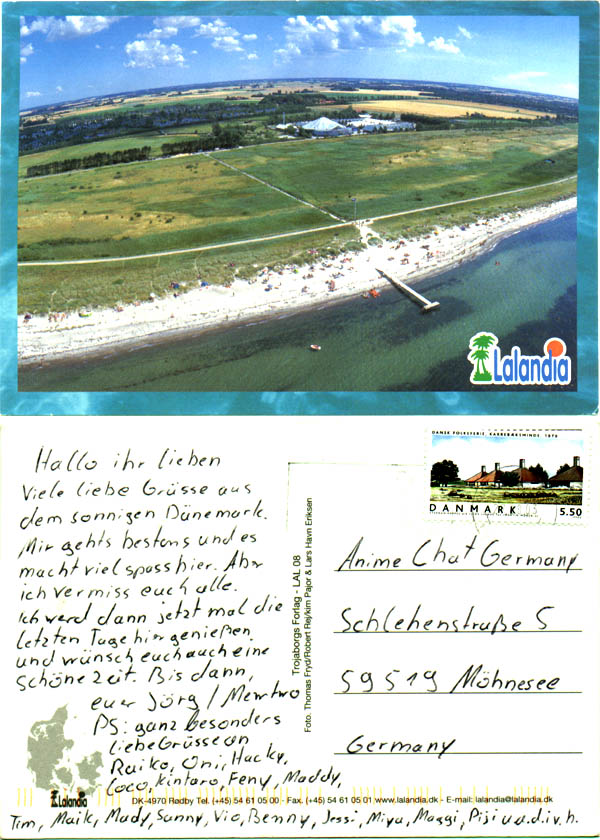 Lalandia
Hallo ihr lieben
Viele liebe Grüsse aus
dem sonnigen Dänemark.
Mir gehts bestens und es
macht viel spass hier. Aber
ich vermiss euch alle.
Ich werd dann jetzt mal die
letzten Tage hier genießen
und wünsch euch auch eine
schöne Zeit. Bis dann,
euer Jörg / Mewtwo
PS: ganz besonders
liebe Grüsse an
Raiko, Oni, Hacky,
Coco, Kintaro, Feny, Maddy,
Tim, Maik, Mady, Sunny, Vio, Benny, Jessi, Miya, Maggi, Piji u.a.d.i.v.h.
Trojaborgs Forlag - LAL 08
Foto: Thomas Fryd/Robert Rej/kim Pajor & Lars Havn Eriksen
DANSK FOLKEFERIE, KARREBÆKSMINDE 1979
DANMARK 5.50
Anime Chat Germany
Schlehenstraße 5
59519 Möhnesee
Germany
Lalandia
DK-4970 Rødby Tel. (+45) 54 61 05 00 - Fax. (+45) 54 61 05 01 www.lalandia.dk - E-mail: lalandia@lalandia.dk